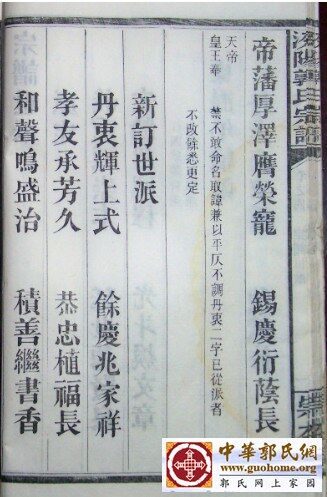 陽郭氏宗譜
帝藩厚澤膺榮寵 錫慶衍蔭長
天帝
皇王華 禁不敢命名取諱兼以平仄不調丹衷二字已從派者
不改餘悉更定
新訂世派
丹衷輝上式 餘慶兆家祥
孝友承芳久 恭忠植福長
和聲鳴盛治 積善繼書香
中華郭氏網
www.guohome.org
郭氏網上家園